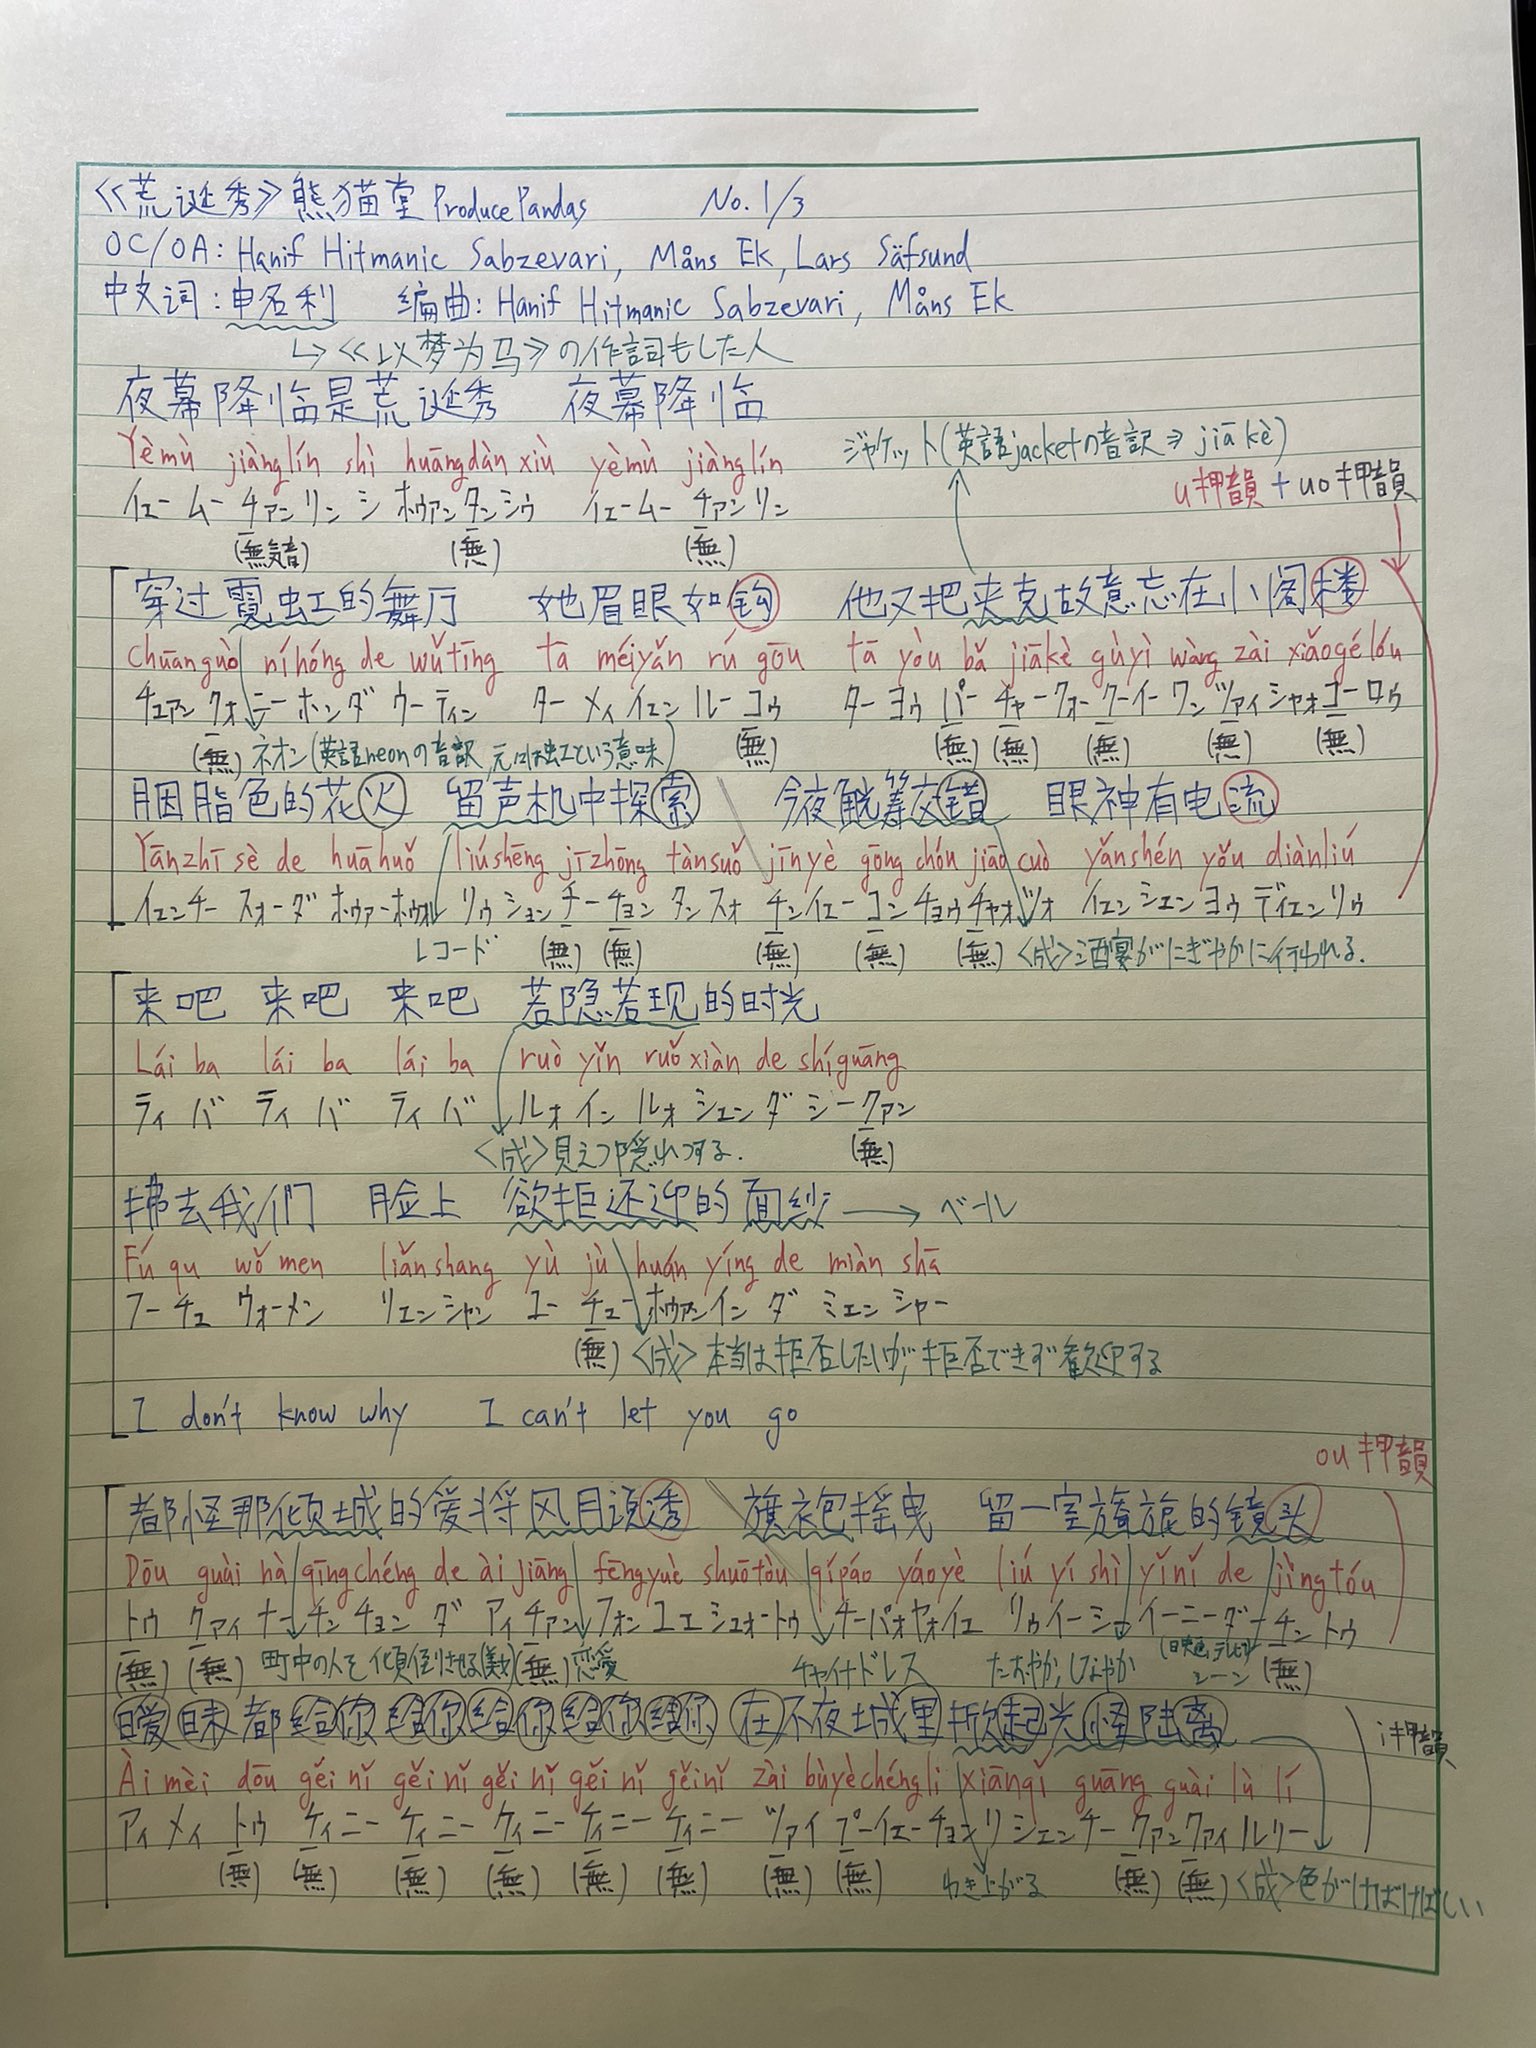 《荒诞秀》熊猫堂 Produce Pandas No. 1/3
OC/OA: Hanif Hitmanic Sabzevari, Måns Ek, Lars Säfsund
中文词: 申名利 编曲: Hanif Hitmanic Sabzevari, Måns Ek
↳《以梦为马》の作詞もした人
夜幕降临是荒诞秀 夜幕降临
Yèmù jiànglín shì huāngdàn xiù yèmù jiànglín
ジャケット(英語jacketの音訳⇒jiākè)
イェームーチァンリンシ ホゥアンタンシウ イェームーチァンリン
u押韻+uo押韻
(無気音) (無) (無)
穿过霓虹的舞厅 她眉眼如钩 他又把夹克故意忘在小阁楼
chuānguò níhóng de wǔtīng tā méiyǎn rú gōu tā yòu bǎ jiākè gùyì wàng zài xiǎogé lóu
チュアンクォニーホンダ ウーティン ターメイイェンルーコウ ターヨウパーチャークォークーイーワンツァイシャオコーロウ
(無) ネオン(英語neonの音訳,元は虹という意味) (無) (無) (無) (無) (無) (無)
胭脂色的花火 留声机中探索 今夜觥筹交错 眼神有电流
Yānzhī sè de huāhuǒ liúshēng jīzhōng tànsuǒ jīnyè gōng chóu jiāo cuò yǎnshén yǒu diànliú
イェンチースォーダホゥァーホゥォ リゥションチーチョンタンスォ チンイェーコンチョウチャオツォ イェンシェンヨウディエンリゥ
レコード (無) (無) (無) (無) (無) <成>酒宴がにぎやかに行われる.
来吧 来吧 来吧 若隐若现的时光
Lái ba lái ba lái ba ruò yǐn ruǒ xiàn de shíguāng
ライ バ ライ バ ライ バ ルォ イン ルォ シェン ダ シークァン
<成>見えつ隠れつする. (無)
拂去我们 脸上 欲拒还迎的面纱 → ベール
Fú qu wǒ men liǎnshang yù jù huán yíng de miàn shā
フーチュ ウォーメン リェンシャン ユーチューホゥアンインダ ミェンシャー
(無) <成>本当は拒否したいが,拒否できず歓迎する
I don't know why I can't let you go
ou押韻
都怪那倾城的爱将风月说透 旗袍摇曳 留一室旖旎的镜头
Dōu guài nà qīngchéng de ài jiāng fēngyuè shuōtòu qípáo yáoyè liú yí shì yǐnǐ de jìngtóu
トウ クァイ ナーチンチョン ダ アイチァンフォンユエシュオートウ チーパオヤオイエ リゥイーシーイーニーダーチントウ
(無) (無) 町中の人を傾倒させる(美女) (無) 恋愛 チャイナドレス たおやか,しなやか (映画,テレビ)シーン (無)
暧昧都给你给你给你给你给你 在不夜城里掀起光怪陆离
i押韻
Ài mèi dōu gěi nǐ gěi nǐ gěi nǐ gěi nǐ gěinǐ zài bùyèchéngli xiānqǐ guāng guài lù lí
アイ メイ トウ ケイニー ケイニー ケイニーケイニー ケイニー ツァイ プーイェーチョンリシェンチー クァンクァイルリー
(無) (無) (無) (無) (無) (無) (無) (無) わき上がる (無) (無) <成>色がけばけばしい